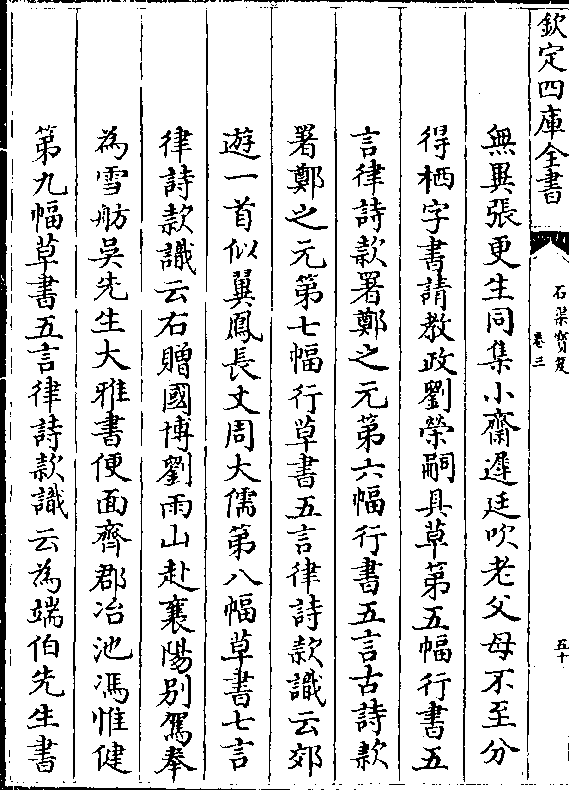 欽定四庫全書
石渠寶笈
卷三
五十
無異張更生同集小齋遲廷吹老父母不至分
得栖字書請教政劉榮嗣具草第五幅行書五
言律詩款署鄭之元第六幅行書五言古詩款
署鄭之元第七幅行草書五言律詩款識云郊
遊一首似翼鳳長丈周大儒第八幅草書七言
律詩款識云右贈國博劉雨山赴襄陽别駕奉
為雪舫吳先生大雅書便面齊郡冶池馮惟健
第九幅草書五言律詩款識云為端伯先生書